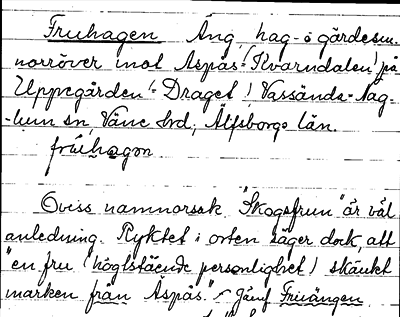 Fruhagen Äng, hag- o gärdesm.
norröver inot Aspås! (Kvarndalen) på
Uppegården! Draget! Vassända-Nag-
-lum sn, Väne hrd, Älfsborgs län.
frúhagon
Oviss namnorsak "Skogsfrun" är väl
anledning. Ryktet i orten säger dock, att
"en fru (högtstående personlighet) skänkt
marken från Aspås." Jämf Fruängen